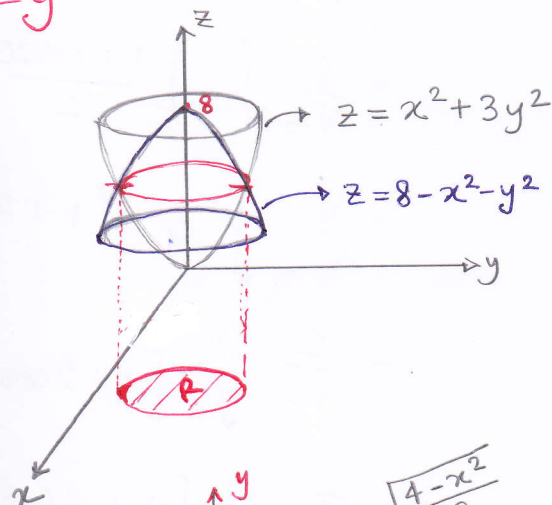 -y
z
8
z = x² + 3y²
z = 8 - x² - y²
y
R
x
y
4 - x²